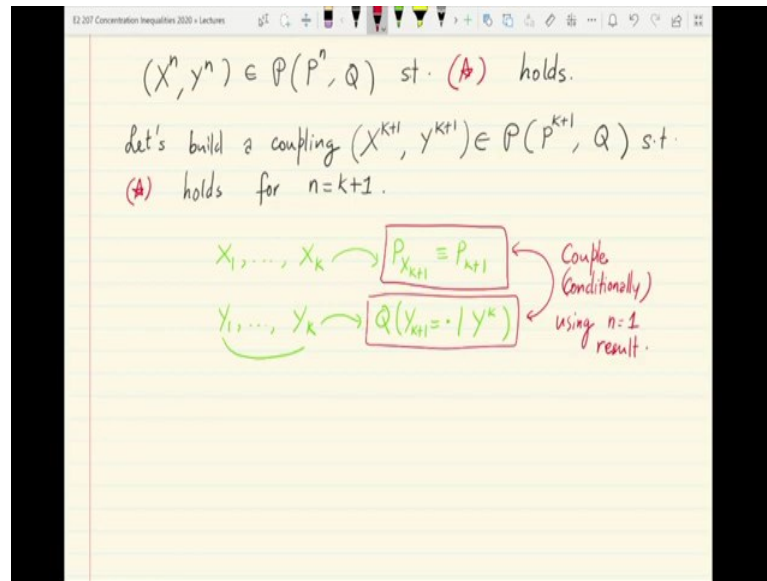 E2 207 Concentration Inequalities 2020 » Lectures
(Xⁿ, Yⁿ) ∈ P(Pⁿ, Q) st. (☆) holds.
Let's build a coupling (X^{k+1}, Y^{k+1}) ∈ P(P^{k+1}, Q) s.t.
(☆) holds for n=k+1.
X₁, ..., X_k P_{X_{k+1}} ≡ P_{k+1}
Y₁, ..., Y_k Q(Y_{k+1} = · | Y^k)
Couple
(Conditionally)
using n=1
result.